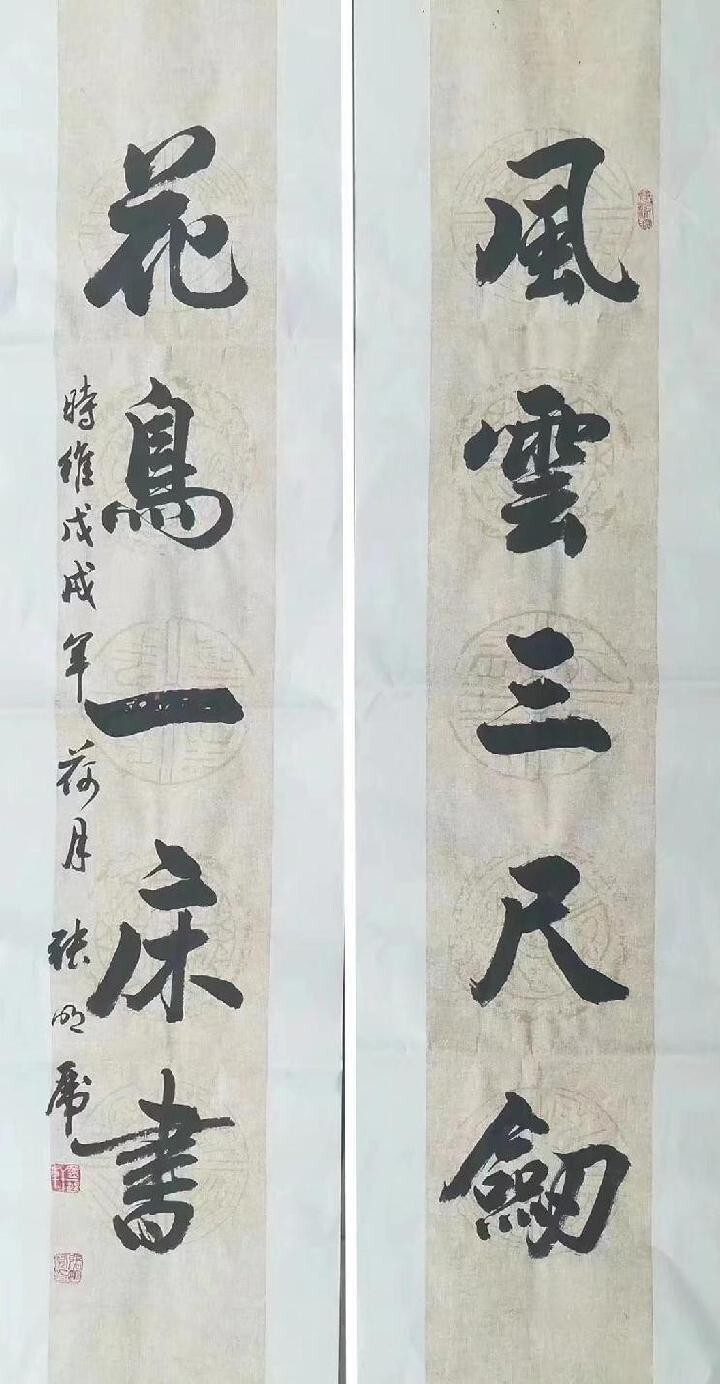 風雲三尺劍
花鳥一床書
時維戊戌年荷月 張明